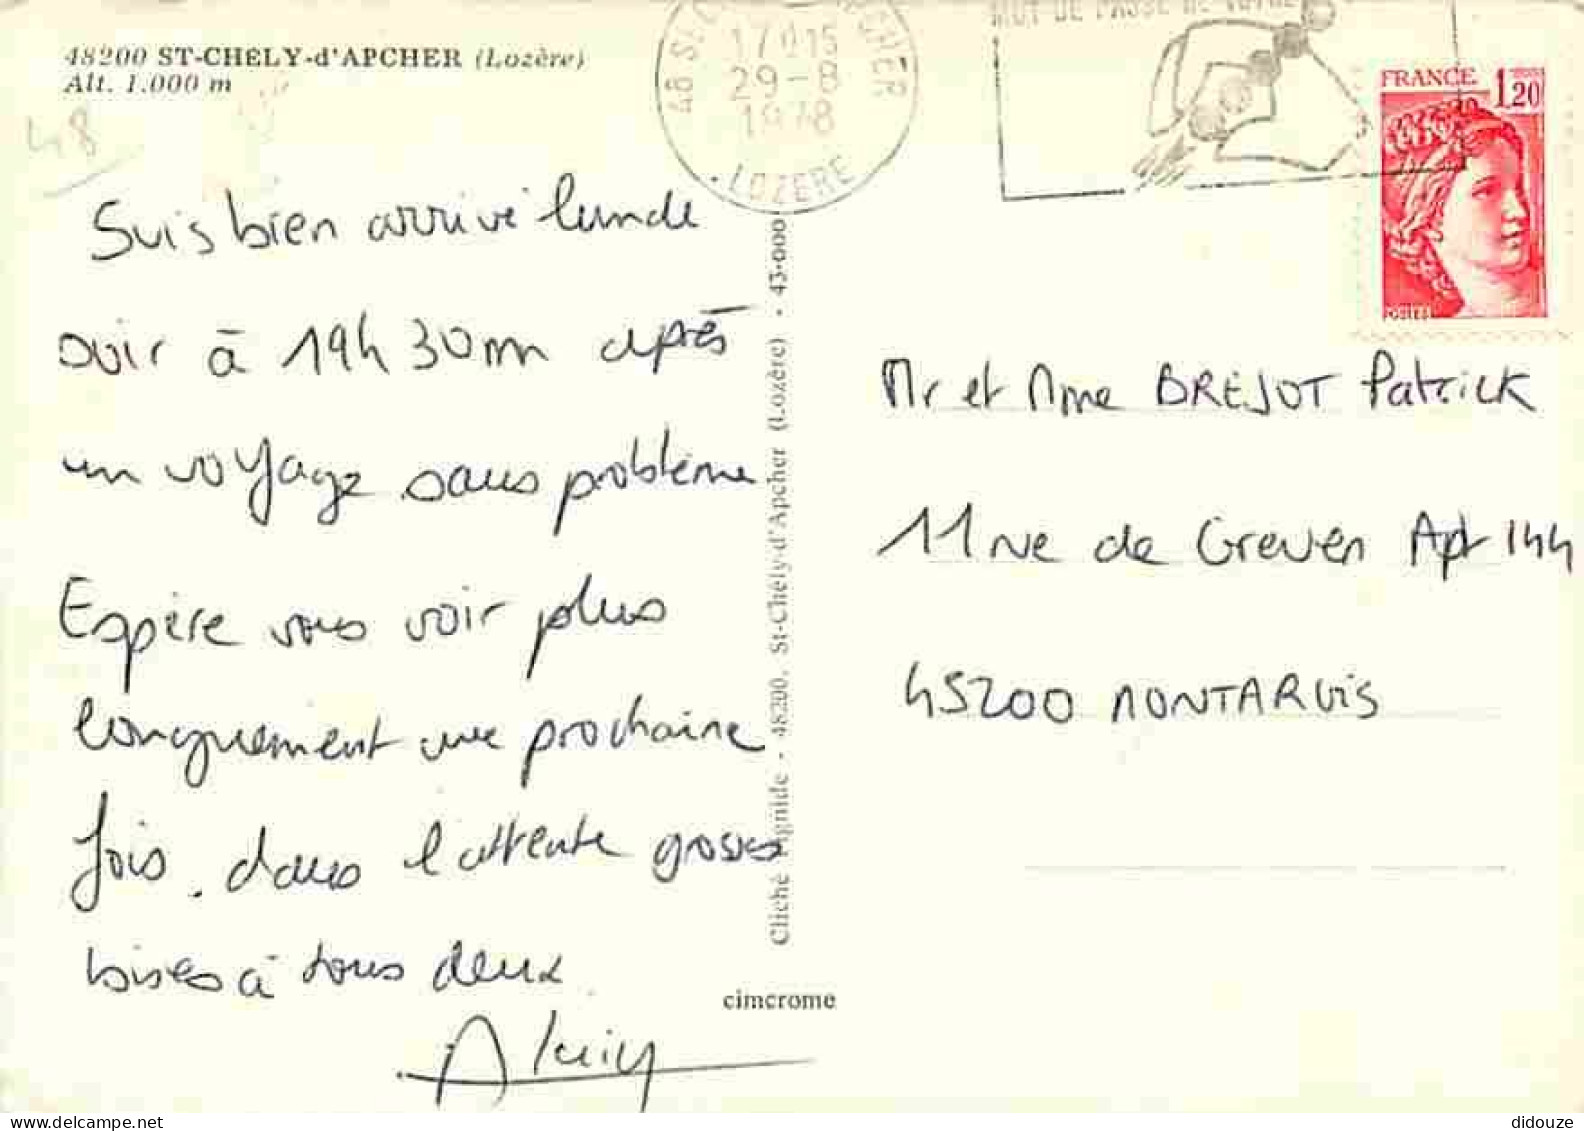 48200 ST-CHELY-d'APCHER (Lozère)
Alt. 1.000 m
48
17H15
29-8
1978
LOZERE
MOT DE PASSE DE VOTRE
FRANCE 1,20
POSTES
Suis bien arrivé lunde
soir à 19h 30mn après
un voyage sans problème
Espère vous voir plus
longuement une prochaine
fois. dans l'attente grosses
bises à tous deux
Alain
Mr et Mme BREJOT Patrick
11 rue de Greven Apt 144
45200 MONTARGIS
Cliché - 48200. St-Chély-d'Apcher (Lozère) - 43.000
cimcrome
didouze